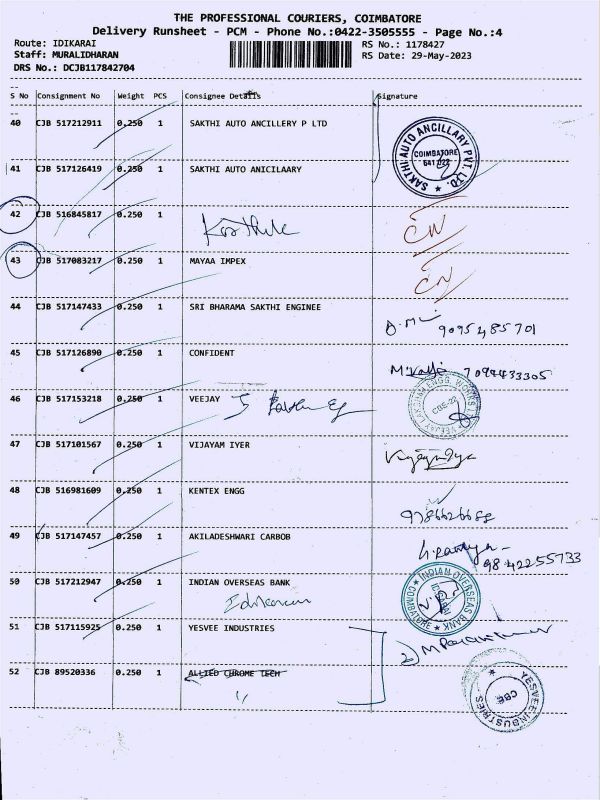 THE PROFESSIONAL COURIERS, COIMBATORE
Delivery Runsheet - PCM - Phone No.:0422-3505555 - Page No.:4
Route: IDIKARAI
RS No.: 1178427
Staff: MURALIDHARAN
RS Date: 29-May-2023
DRS No.: DCJB117842704
S No Consignment No Weight PCS Consignee Details Signature
40 CJB 517212911 0.250 1 SAKTHI AUTO ANCILLERY P LTD
SAKTHI AUTO ANCILLARY PVT. LTD.
COIMBATORE
641 022
41 CJB 517126419 0.250 1 SAKTHI AUTO ANICILAARY
42 CJB 516845817 0.250 1
43 CJB 517083217 0.250 1 MAYAA IMPEX
44 CJB 517147433 0.250 1 SRI BHARAMA SAKTHI ENGINEE
9095485701
45 CJB 517126890 0.250 1 CONFIDENT
7094433305
46 CJB 517153218 0.250 1 VEEJAY
CBE-22
47 CJB 517101567 0.250 1 VIJAYAM IYER
48 CJB 516981609 0.250 1 KENTEX ENGG
49 CJB 517147457 0.250 1 AKILADESHWARI CARBOB
9842255733
50 CJB 517212947 0.250 1 INDIAN OVERSEAS BANK
INDIAN OVERSEAS BANK
COIMBATORE
51 CJB 517115925 0.250 1 YESVEE INDUSTRIES
52 CJB 89520336 0.250 1 ALLIED CHROME TECH
YESVEE INDUSTRIES
CBE